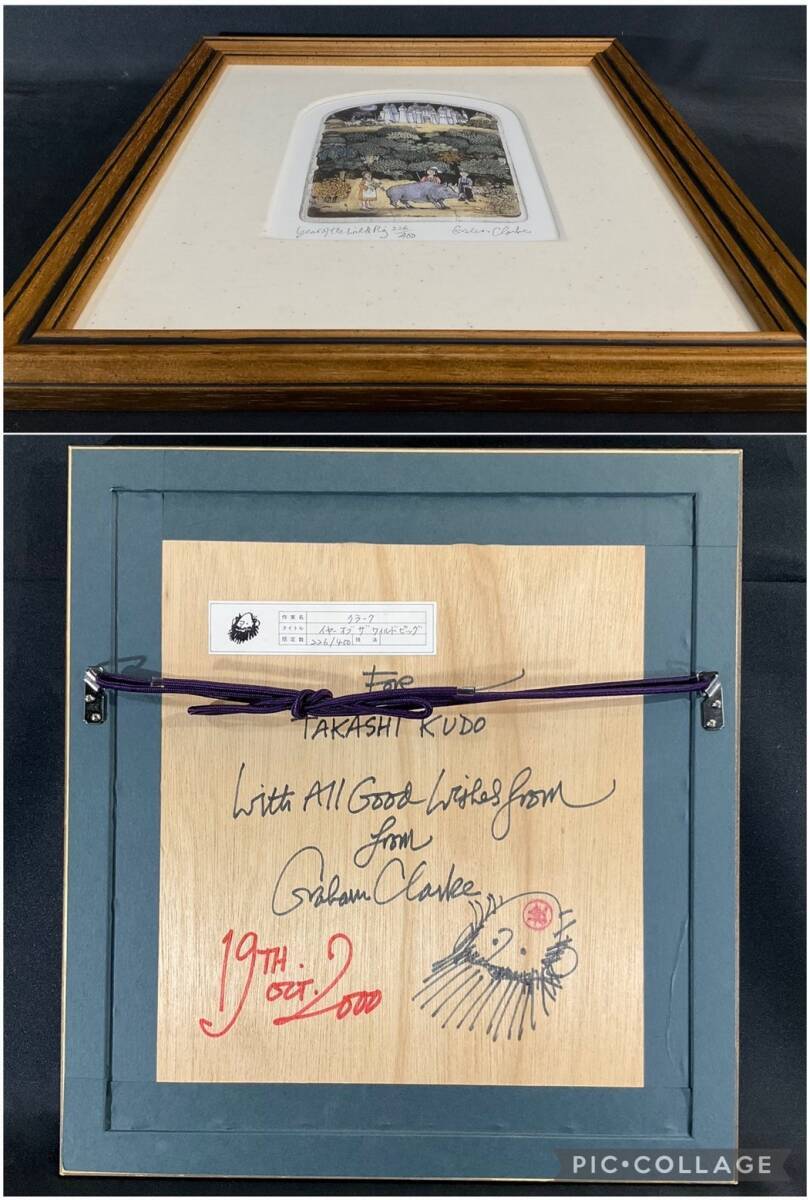 Year of the Wild Pig 226/400 Graham Clarke
作家名 クラーク
タイトル イヤーオブザワイルドピッグ
限定数 226/400 技法
For
TAKASHI KUDO
With All Good Wishes from
from
Graham Clarke
19TH.
OCT. 2000
PIC•COLLAGE